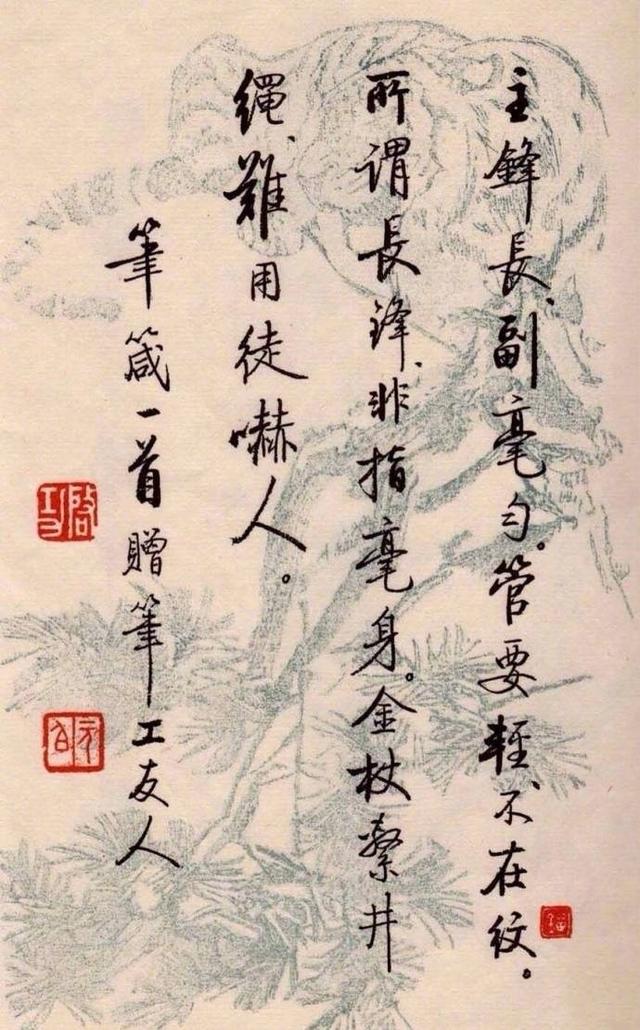 主鋒長、副毫勻。管要輕、不在紋。
所谓長鋒、非指毫身。金杖繫井
繩、難用徒嚇人。
筆箴一首贈筆工友人
啓功